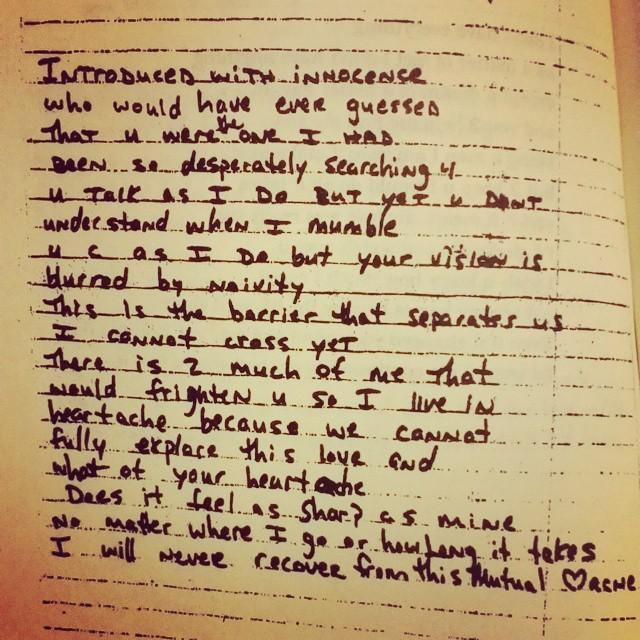 INTRODUCED WITH INNOCENSE
who would have ever guessed
THAT u WERE the ONE I HAD
BEEN so desperately searching 4
u TALK AS I DO BUT yET u DONT
understand when I mumble
u c as I Do but your vision is
blurred by naivity
This Is the barrier that separates us
I cannot cross yet
There is 2 much of me that
would frighten u so I live IN
heartache because we cannot
fully explore this love and
what of your heartache
Does it feel as sharp as mine
No matter where I go or how long it takes
I will NEVER recover from this Mutual ♡ACHE